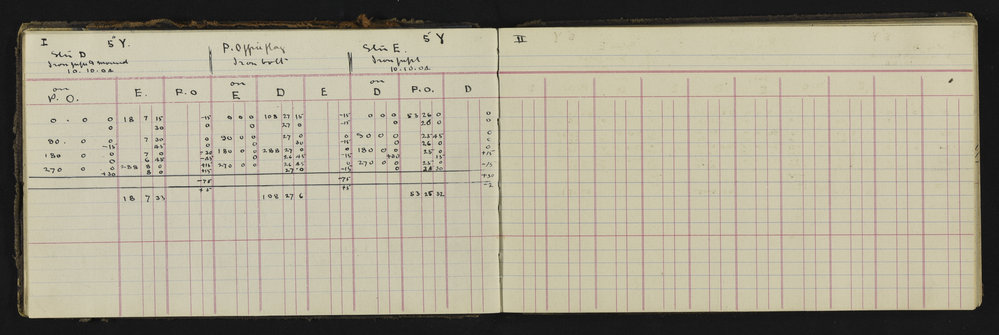 I 5" Y. 5 Y II
Stn D P. Office flag Stn E.
Iron pipe & mound Iron bolt Iron pipe
10.10.02 10.10.02
on on on
P. O. E. P. O E D E D P. O. D
0 . 0 0 18 7 15 -15 0 0 0 108 27 15 -15 0 0 0 53 26 0 0
0 30 0 0 27 0 -15 0 26 0 0
90 . 0 0 7 30 0 90 0 0 27 0 0 90 0 0 25 45 0
180 0 0 7 0 180 0 0 288 27 0 180 0 0 25 0 +15
270 0 0 288 8 0 +15 270 0 0 26 45 0 270 0 0 25 0 -15
+30 8 0 +15 27 0 -15 0 24 30 +30
-75 -75 -2
+5 +5
18 7 33 108 27 6 53 25 32